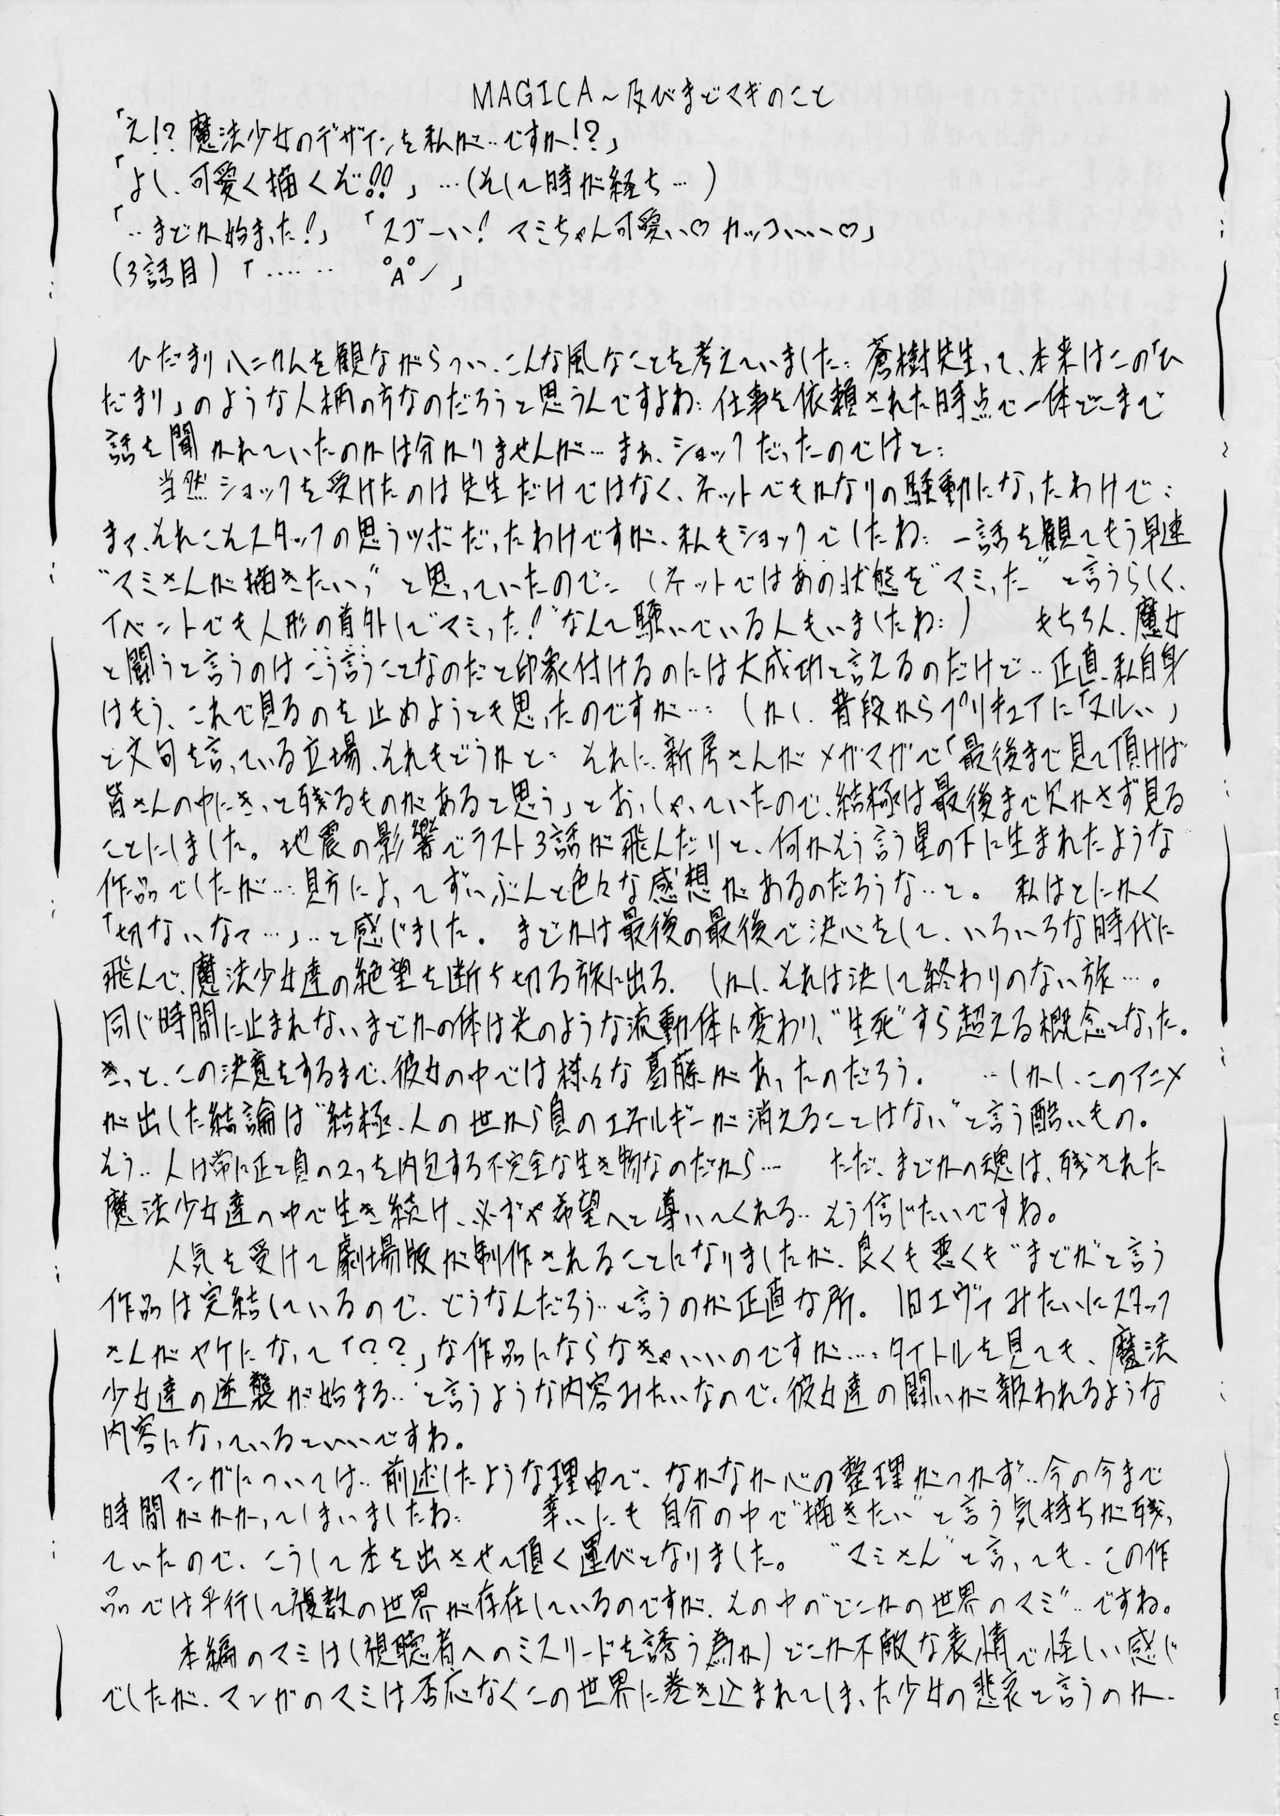 MAGICA〜及びまどマギのこと
「え!? 魔法少女のデザインを私が…ですか!?」
「よし、可愛く描くぞ!!」…(そして時が経ち…)
「‥まどか始まった!」「スゴーい! マミちゃん可愛い♡ カッコいい♡」
(3話目)「…… °A°ノ」
ひだまりハニカムを観ながらつい、こんな風なことを考えていました‥ 蒼樹先生って、本来はこの「ひ
だまり」のような人柄の方なのだろうと思うんですよね‥ 仕事を依頼された時点で一体どこまで
話を聞かれていたのかは分かりませんが… まぁ、ショックだったのではと‥
当然ショックを受けたのは先生だけではなく、ネットでもかなりの騒動になったわけで‥
まァ、それこそスタッフの思うツボだったわけですが、私もショックでしたね‥ 一話を観てもう早速
“マミさんが描きたいっ” と思っていたので‥ (ネットではあの状態を“マミった” と言うらしく、
イベントでも人形の首外して“マミった!”なんて騒いでいる人もいましたね‥) もちろん、魔女
と闘うと言うのはこう言うことなのだと印象付けるのには大成功と言えるのだけど‥ 正直、私自身
はもう、これで見るのを止めようとも思ったのですが…‥ しかし、普段からプリキュアに「ヌルい」
と文句を言っている立場、それもどうかと‥ それに、新房さんがメガマガで「最後まで見て頂けば
皆さんの中にきっと残るものがあると思う」とおっしゃっていたので、結極は最後まで欠かさず見る
ことにしました。地震の影響でラスト3話が飛んだりと、何かそう言う星の下に生まれたような
作品でしたが…‥見方によってずいぶんと色々な感想があるのだろうな‥と。 私はとにかく
「切ないなァ…」‥と感じました。 まどかは最後の最後で決心をして、いろいろな時代に
飛んで、魔法少女達の絶望を断ち切る旅に出る. しかし、それは決して終わりのない旅…。
同じ時間に止まれないまどかの体は光のような流動体に変わり、“生死”すら超える概念となった。
きっと、この決意をするまで、彼女の中では様々な葛藤があったのだろう。 ‥しかし、このアニメ
が出した結論は“結極、人の世から負のエネルギーが消えることはない”と言う酷いもの。
そう‥人は常に正と負の2つを内包する不完全な生き物なのだから… ただ、まどかの魂は、残された
魔法少女達の中で生き続け、必ずや希望へと導いてくれる‥ そう信じたいですね。
人気を受けて劇場版が制作されることになりましたが、良くも悪くも“まどか”と言う
作品は完結しているので、どうなんだろう‥と言うのが正直な所。 旧エヴァみたいにスタッフ
さんがヤケになって「??」な作品にならなきゃいいのですが…‥タイトルを見ても、魔法
少女達の逆襲が始まる‥ と言うような内容みたいなので、彼女達の闘いが報われるような
内容になっているといいですね。
マンガについては‥ 前述したような理由で、なかなか心の整理がつかず‥今の今まで
時間がかかってしまいましたね‥ 幸いにも自分の中で“描きたい”と言う気持ちが残っ
ていたので、こうして本を出させて頂く運びとなりました。 “マミさん”と言っても、この作
品では平行して複数の世界が存在しているのですが、その中の“どこかの世界のマミ”‥ですね。
本編のマミは(視聴者へのミスリードを誘う為か)どこか不敵な表情で怪しい感じ
でしたが、マンガのマミは否応なくこの世界に巻き込まれてしまった少女の悲哀と言うのか、
19